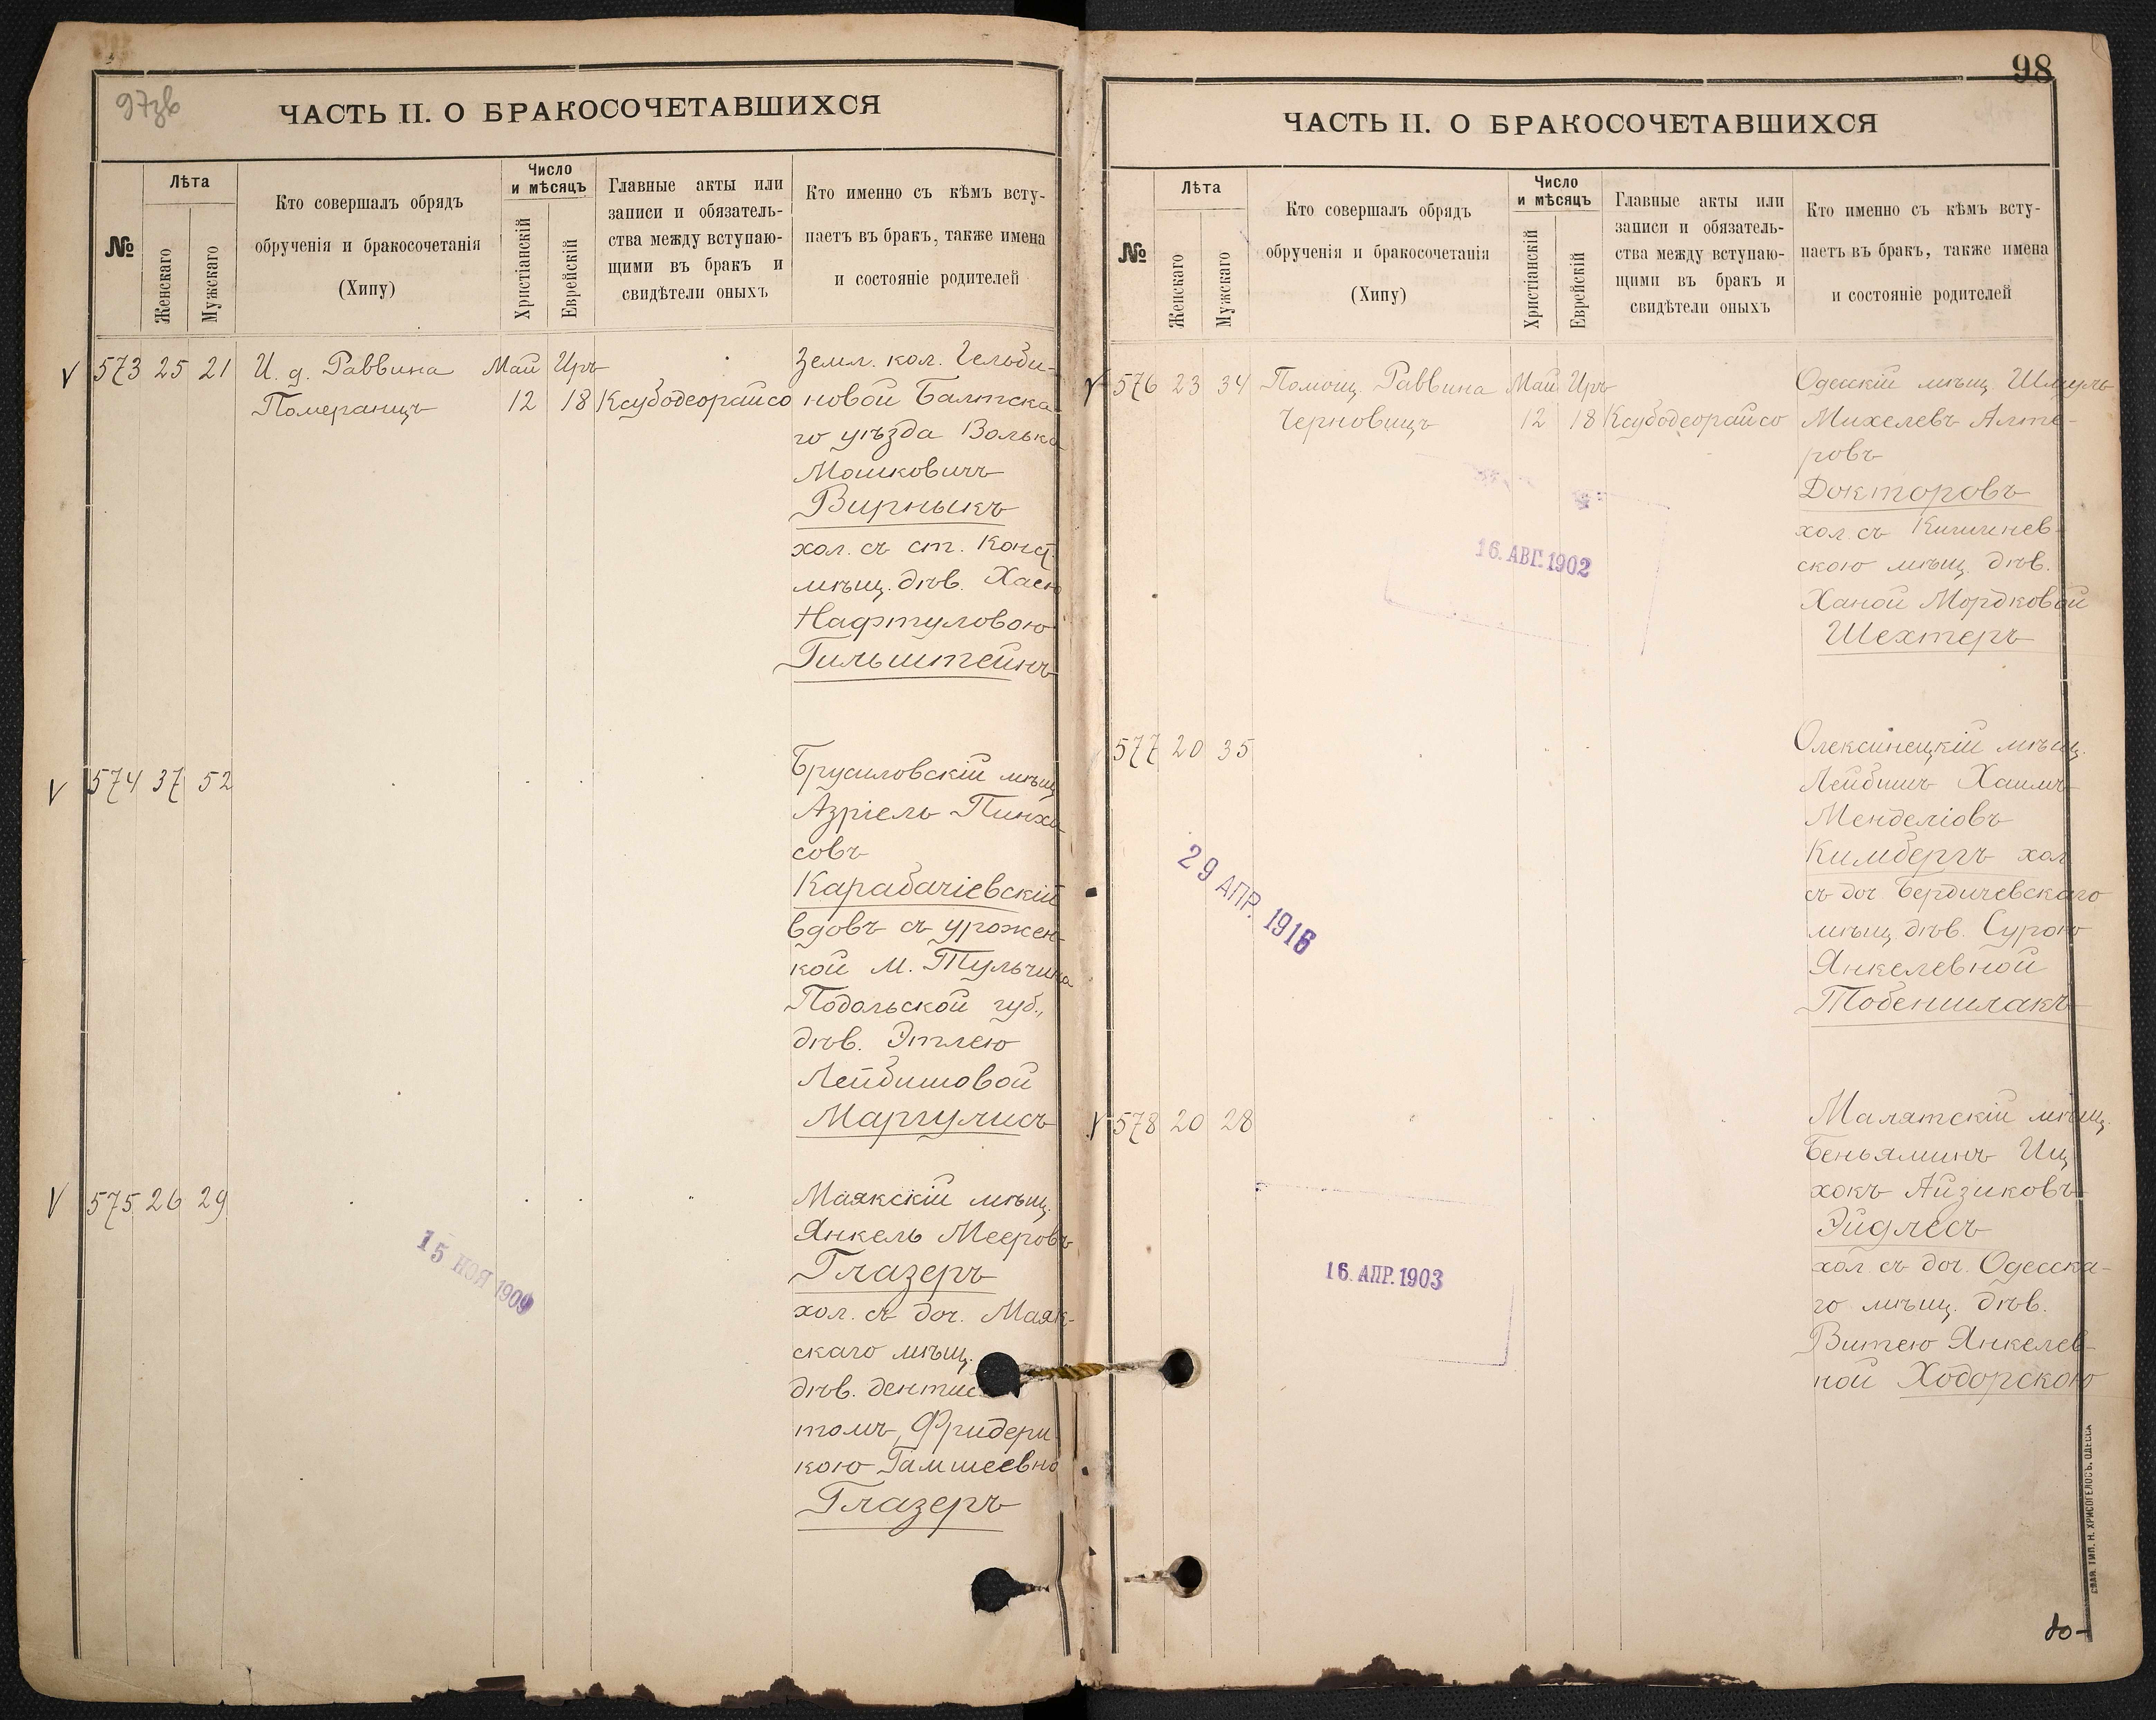 97зв
ЧАСТЬ II. О БРАКОСОЧЕТАВШИХСЯ
№
Лѣта
Женскаго
Мужскаго
Кто совершалъ обрядъ
обрученія и бракосочетанія
(Хипу)
Число
и мѣсяцъ
Христіанскій
Еврейскій
Главные акты или
записи и обязатель-
ства между вступаю-
щими въ бракъ и
свидѣтели оныхъ
Кто именно съ кѣмъ всту-
паетъ въ бракъ, также имена
и состояніе родителей
573 25 21 И. д. Раввина Май Иръ Земл. кол. Гельби-
Померанцъ 12 18 Ксубодеорайсо новой Балтска
го уѣзда Волько
Мошковичъ
Вирныкъ
хол. съ ст. Конст.
мѣщ. дѣв. Хаею
Нафтуловою
Гильштейнъ
574 37 52 Брусиловскій мѣщ.
Азріель Пинха
совъ
Карабачіевскій
вдовъ съ урожен-
кой м. Тульчина
Подольской губ.,
дѣв. Этлею
Лейбишовой
Маргулисъ
575 26 29 Маякскій мѣщ.
Янкель Мееровъ
Глазеръ
хол. съ доч. Маяк-
скаго мѣщ.
дѣв. дентис
томъ, Фридери
кою Гамшеевно
Глазеръ
15 НОЯ 1909
98
ЧАСТЬ II. О БРАКОСОЧЕТАВШИХСЯ
№
Лѣта
Женскаго
Мужскаго
Кто совершалъ обрядъ
обрученія и бракосочетанія
(Хипу)
Число
и мѣсяцъ
Христіанскій
Еврейскій
Главные акты или
записи и обязатель-
ства между вступаю-
щими въ бракъ и
свидѣтели оныхъ
Кто именно съ кѣмъ всту-
паетъ въ бракъ, также имена
и состояніе родителей
576 23 34 Помощ. Раввина Май Иръ Одесскій мѣщ. Шмуль
Черновицъ 12 18 Ксубодеорайсо Михелевъ Алте-
ровъ
Докторовъ
хол. съ Кишинев-
скою мѣщ. дѣв.
Ханой Мордковой
Шехтеръ
16. АВГ. 1902
577 20 35 Олексинецкій мѣщ.
Лейбишъ Хаимъ
Менделіовъ
Кимбергъ хол.
съ доч. Бердичевскаго
мѣщ. дѣв. Сурою
Янкелевной
Тобеншлакъ
29 АПР. 1916
578 20 28 Малятскій мѣщ.
Беньяминъ Иц
хокъ Айзиковъ
Эйдлесъ
хол. съ доч. Одесска-
го мѣщ. дѣв.
Витею Янкелев-
ной Ходорскою
16. АПР. 1903
СЛАВ. ТИП. Н. ХРИСОГЕЛОСЪ, ОДЕССА